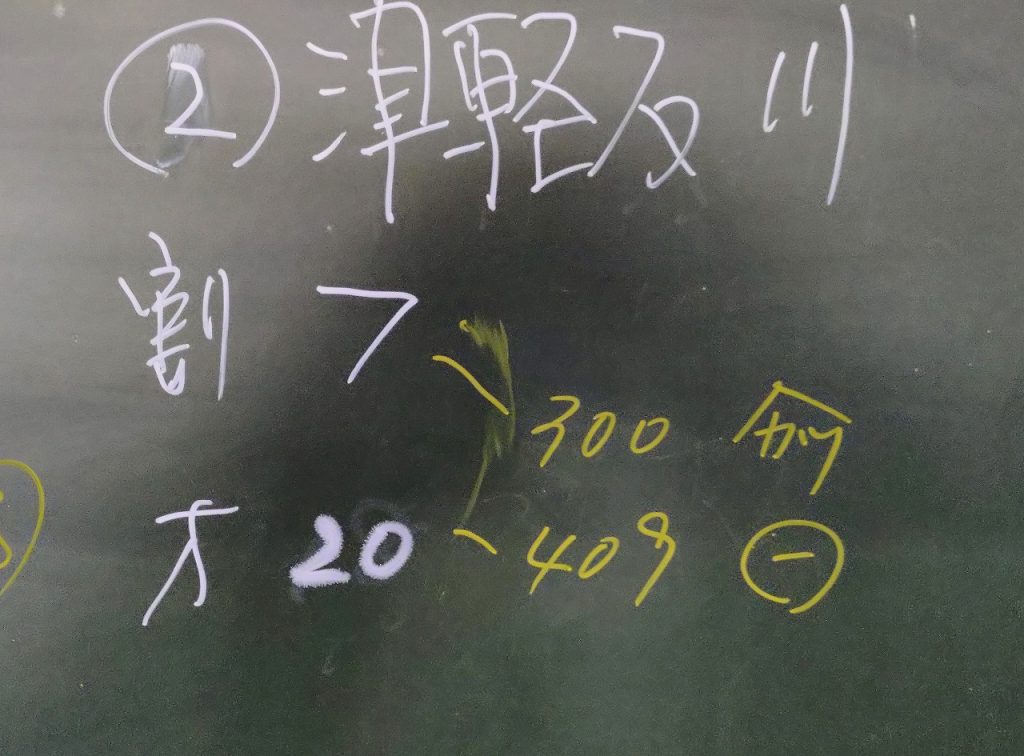 ② 津軽及川
割 7
300 例
才 20
409 ㊀